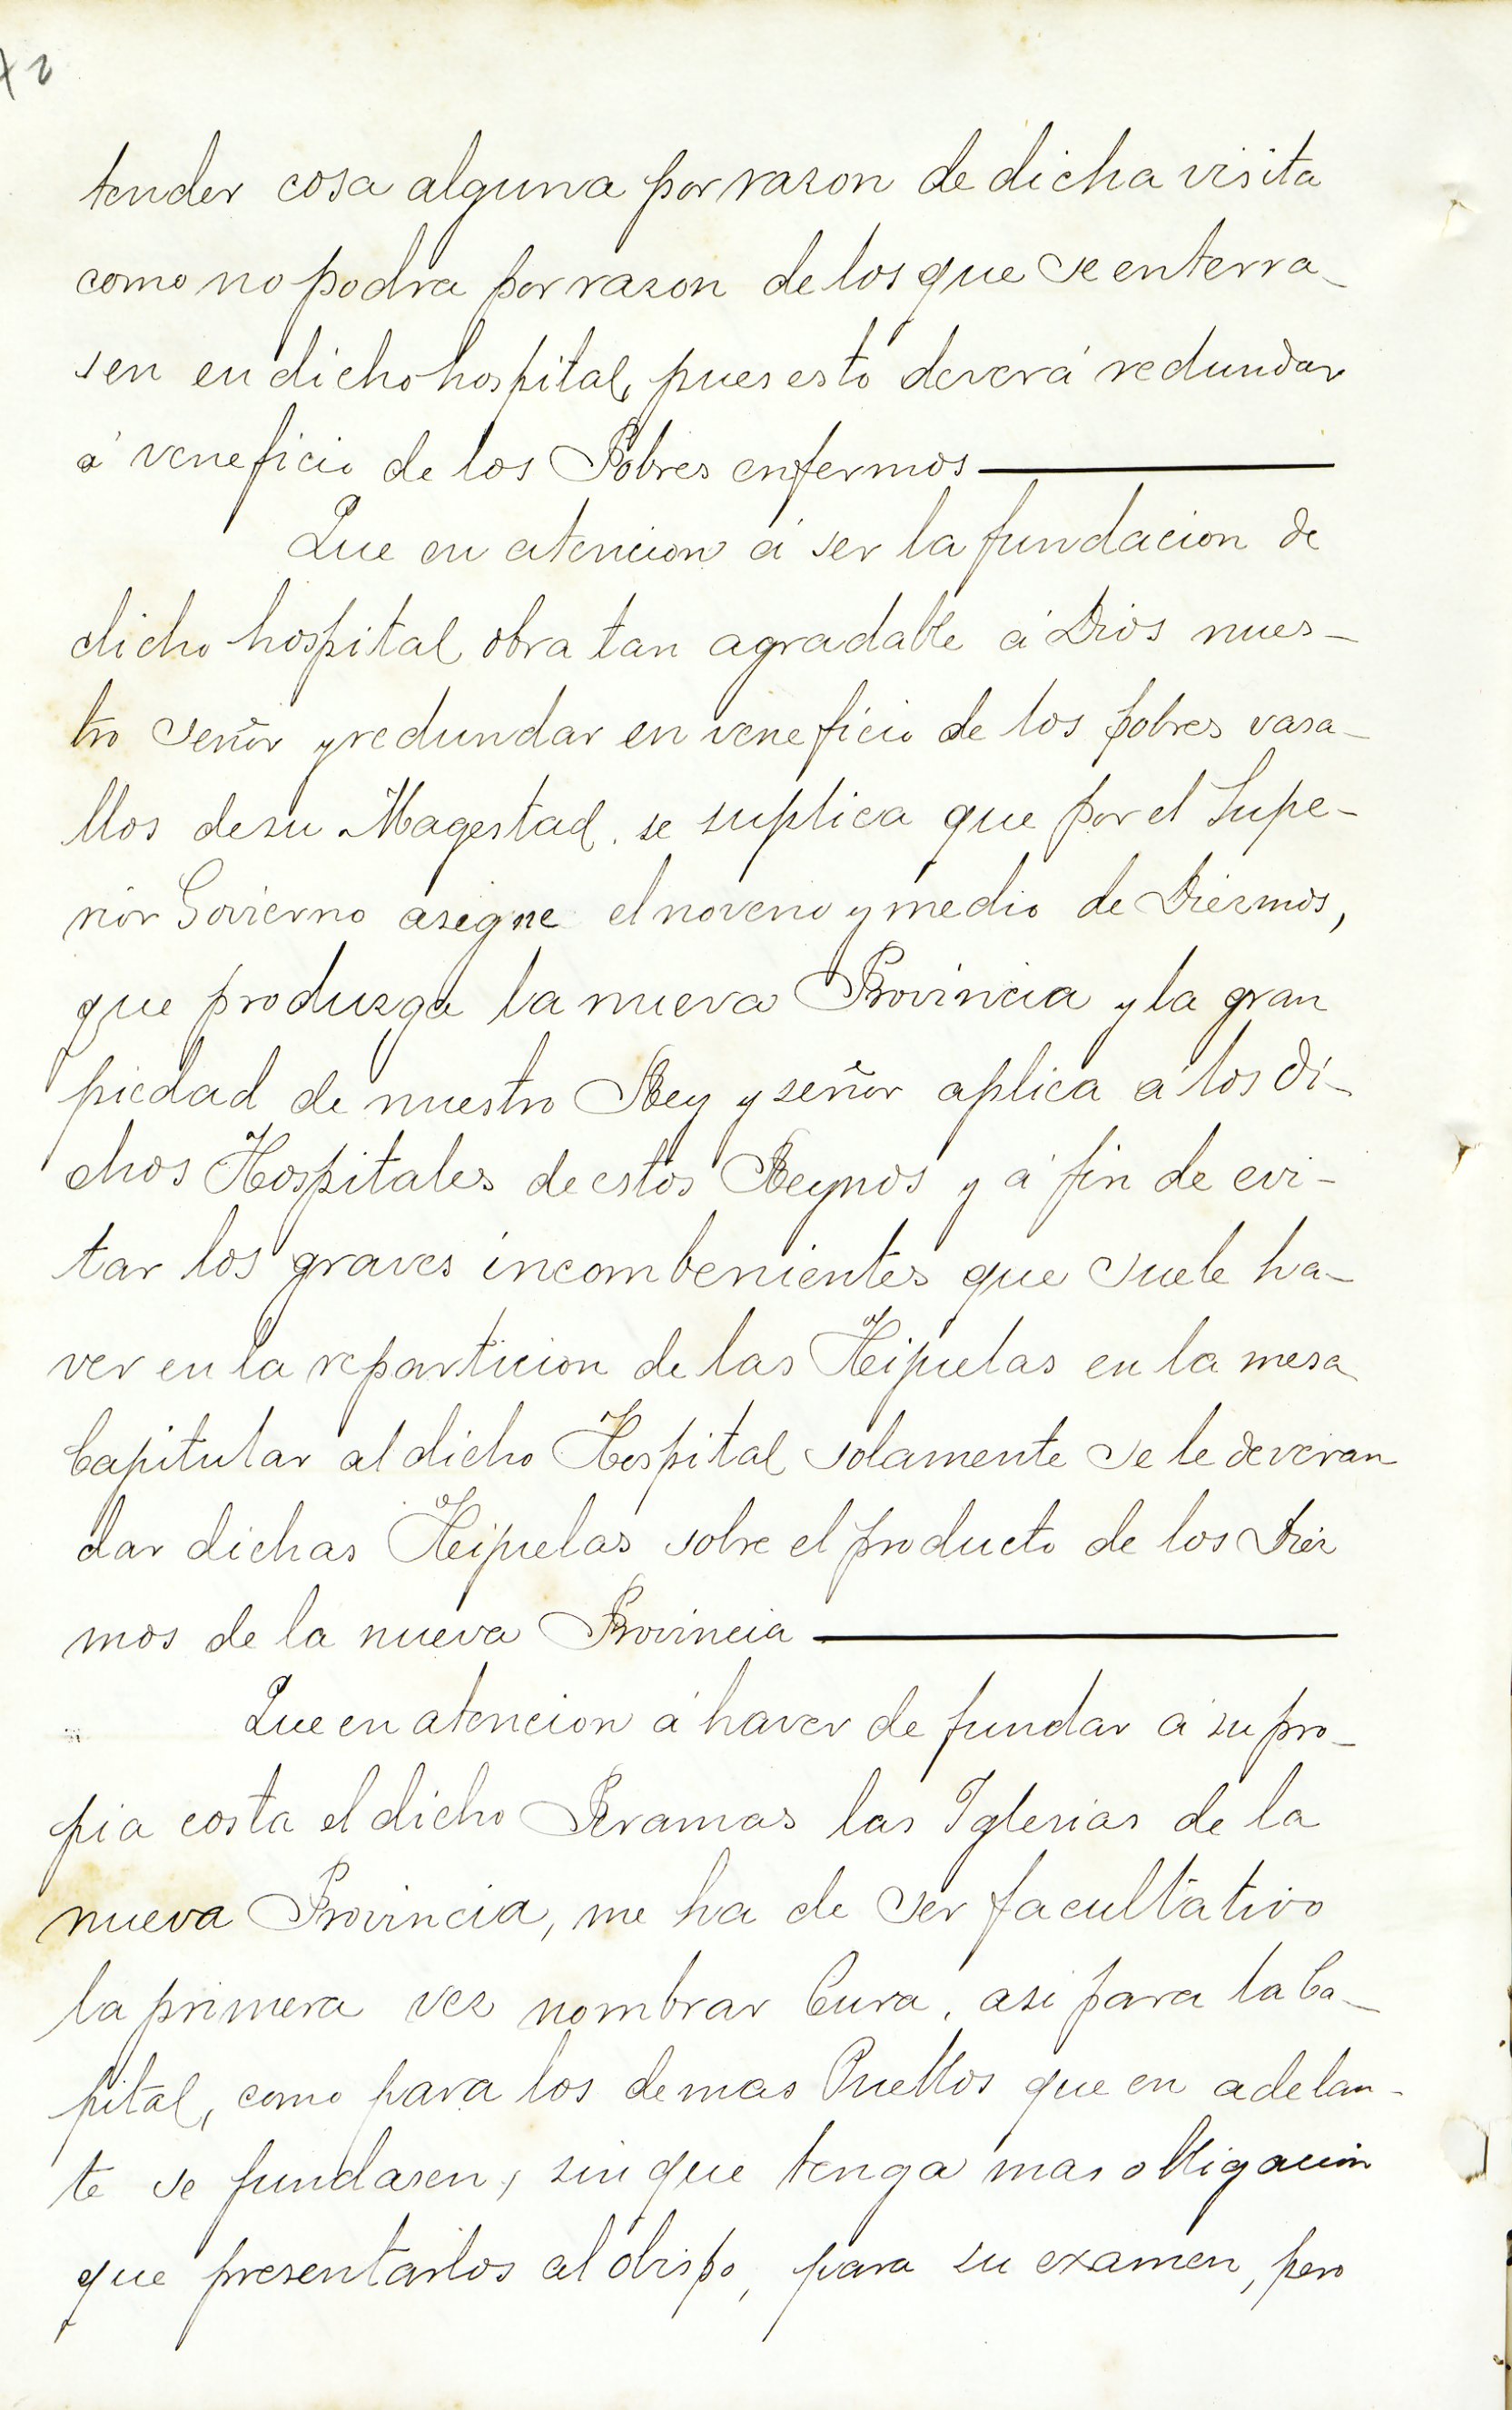 72
tender cosa alguna por razon de dicha visita
como no podra por razon de los que se enterra-
sen en dicho hospital, pues esto deverá redundar
á veneficio de los Pobres enfermos
Que en atencion á ser la fundacion de
dicho hospital obra tan agradable á Dios nues-
tro Señor y redundar en veneficio de los pobres vasa-
llos de su Magestad. se suplica que por el Supe-
rior Govierno asigne el noveno y medio de Diezmos,
que produzga la nueva Provincia y la gran
piedad de nuestro Rey y señor aplica á los di-
chos Hospitales de estos Reynos y á fin de evi-
tar los graves incombenientes que suele ha-
ver en la reparticion de las Heipuelas en la mesa
Capitular al dicho Hospital solamente se le deveran
dar dichas Heipuelas sobre el producto de los Diez
mos de la nueva Provincia
Que en atencion á haver de fundar á su pro-
pia costa el dicho Peramas las Iglesias de la
nueva Provincia, me ha de ser facultativo
la primera vez nombrar Cura, asi para la Ca-
pital, como para los demas Pueblos que en adelan-
te se fundasen, sin que tenga mas obligacion
que presentarlos al obispo, para su examen, pero